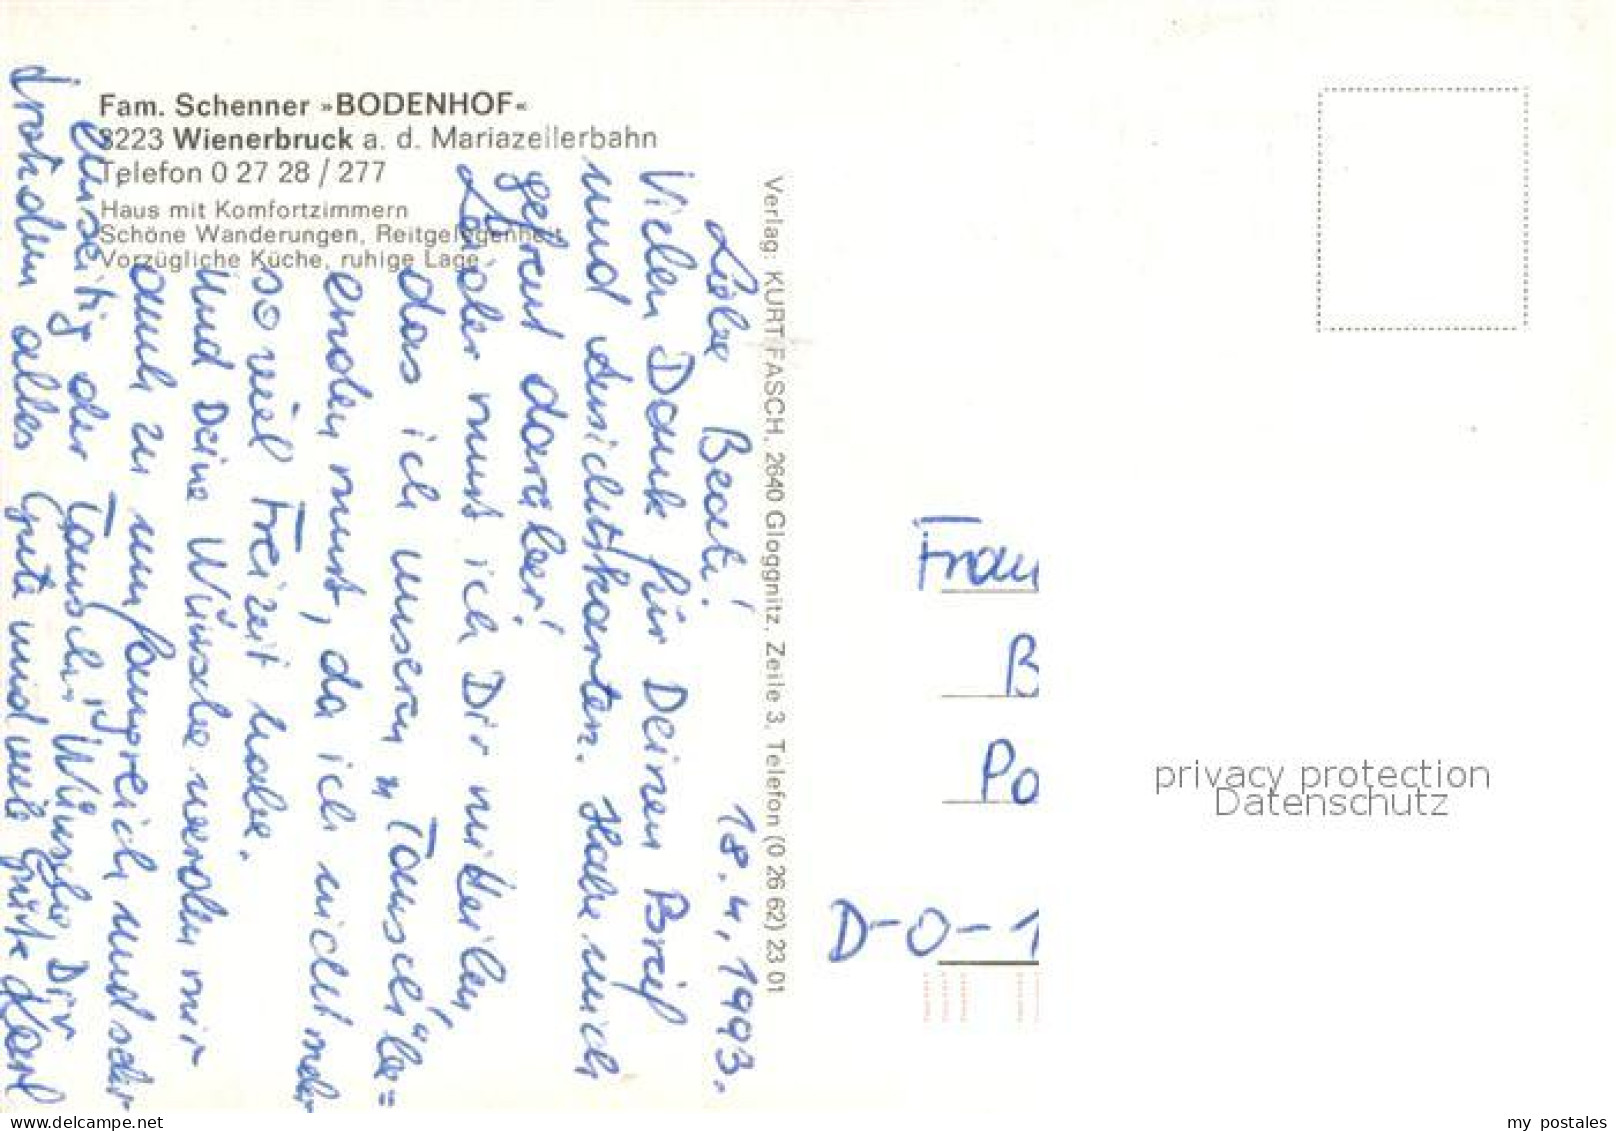 Fam. Schenner »BODENHOF«
3223 Wienerbruck a. d. Mariazellerbahn
Telefon 0 27 28 / 277
Haus mit Komfortzimmern
Schöne Wanderungen, Reitgelegenheit
Vorzügliche Küche, ruhige Lage
Verlag: KURT FASCH, 2640 Gloggnitz, Zeile 3, Telefon (0 26 62) 23 01
18.4.1993.
Liebe Beati!
Vielen Dank für Deinen Brief
und Ansichtskarten. Habe mich
gefreut darüber!
Leider muß ich Dir mitteilen,
das ich unseren "Tausch" be=
enden muß, da ich nicht mehr
so viel Freizeit habe.
Und Deine Wünsche werden mir
auch zu umfangreich und sehr
einseitig der Tausch. Wünsche Dir
trotzdem alles Gute und viele Grüße Karl
Frau
B
Po
D-O-1
privacy protection
Datenschutz
my postales